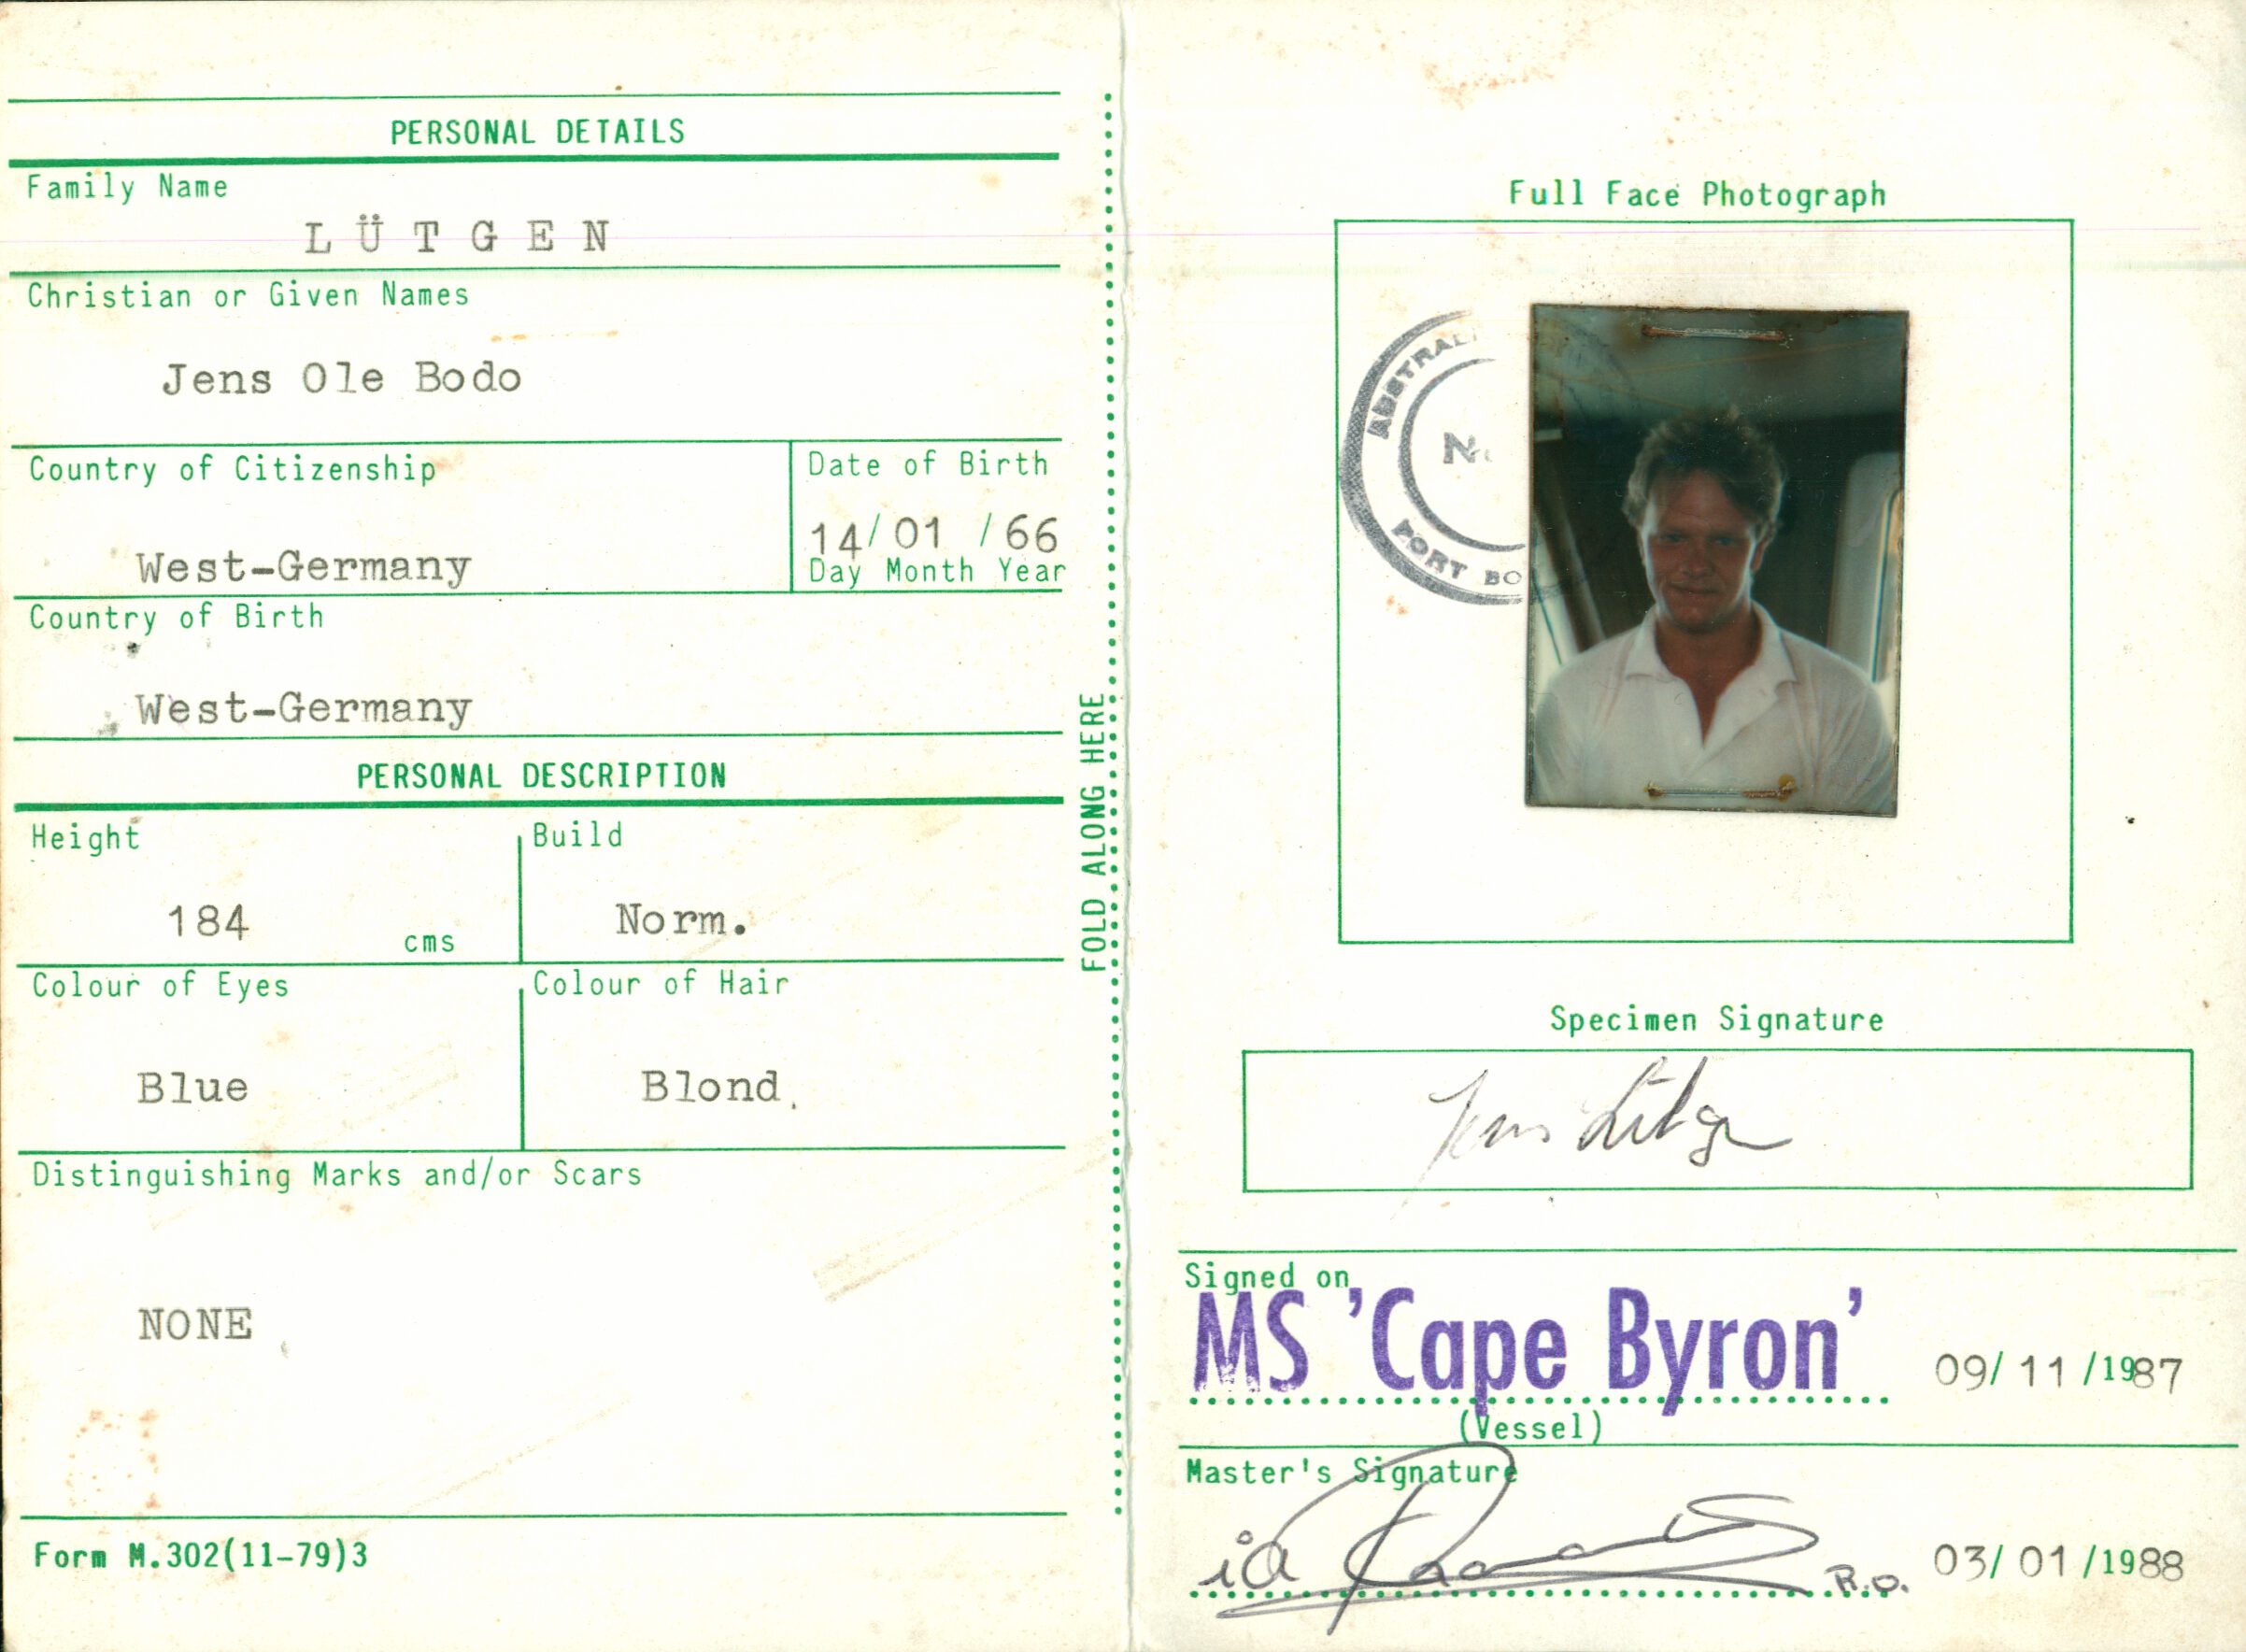 PERSONAL DETAILS
Family Name
LÜTGEN
Christian or Given Names
Jens Ole Bodo
Country of Citizenship
West-Germany
Date of Birth
14/01/66
Day Month Year
Country of Birth
West-Germany
PERSONAL DESCRIPTION
Height
184 cms
Build
Norm.
Colour of Eyes
Blue
Colour of Hair
Blond.
Distinguishing Marks and/or Scars
NONE
Form M.302(11-79)3
FOLD ALONG HERE
Full Face Photograph
PORT
Specimen Signature
Jens Lütgen
Signed on
MS 'Cape Byron' 09/11/1987
(Vessel)
Master's Signature
R.O. 03/01/1988